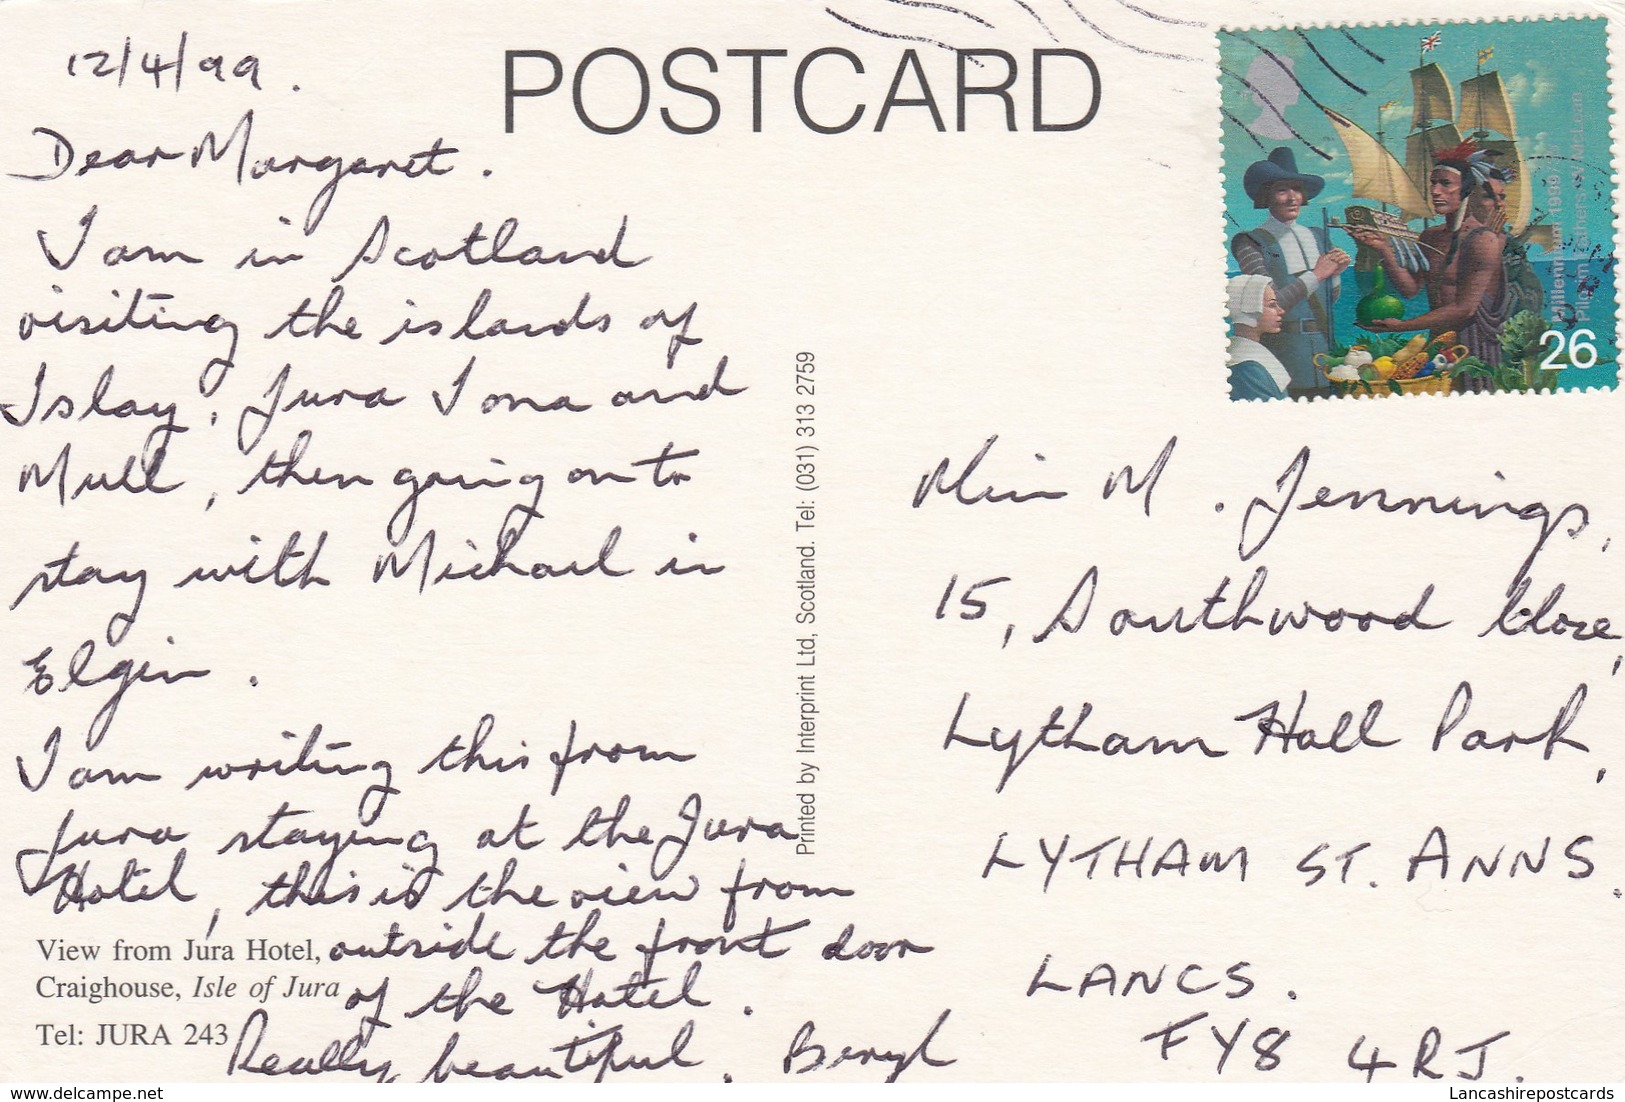 POSTCARD
12/4/99.
Dear Margaret.
I am in Scotland
visiting the islands of
Islay, Jura Iona and
Mull, then going on to
stay with Michael in
Elgin.
I am writing this from
Jura staying at the Jura
Hotel, this is the view from
outside the front door
of the Hotel.
Really beautiful. Beryl
View from Jura Hotel,
Craighouse, Isle of Jura
Tel: JURA 243
Printed by Interprint Ltd, Scotland. Tel: (031) 313 2759
Millennium 1999
Pilgrim Fathers
26
Miss M. Jennings,
15, Southwood Close,
Lytham Hall Park,
LYTHAM ST. ANNS.
LANCS.
FY8 4RJ.
www.delcampe.net
Lancashirepostcards